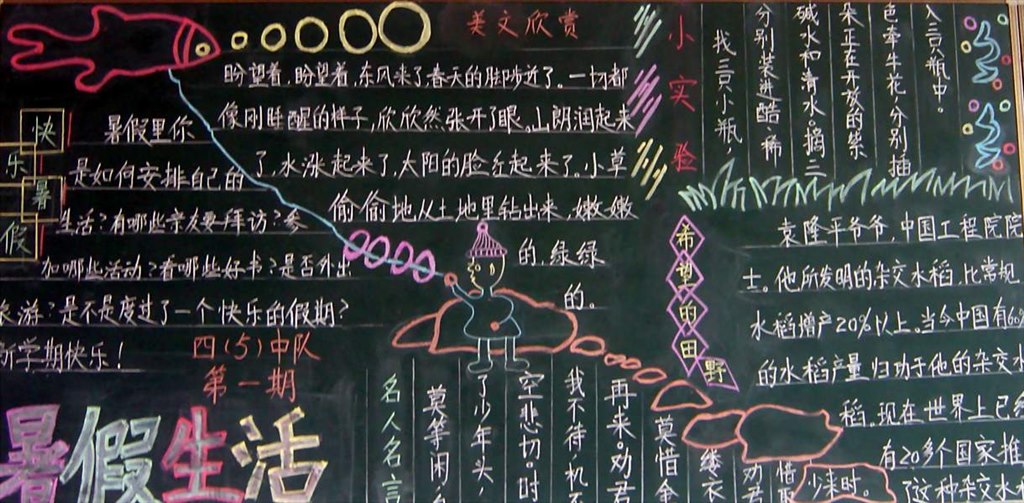 美文欣赏
盼望着,盼望着,东风来了,春天的脚步近了。一切都
像刚睡醒的样子,欣欣然张开了眼。山朗润起来
了,水涨起来了,太阳的脸红起来了。小草
偷偷地从土地里钻出来,嫩嫩
的,绿绿
的。
快
乐
暑
假
暑假里你
是如何安排自己的
生活?有哪些亲友要拜访?参
加哪些活动?看哪些好书?是否外出
旅游?是不是度过了一个快乐的假期?
新学期快乐!
四(5)中队
第一期
暑假生活
小实验
找三只小瓶
分别装进醋、稀
碱水和清水,摘三
朵正在开放的紫
色牵牛花,分别插
入三只瓶中。
希望的田野
袁隆平爷爷,中国工程院院
士。他所发明的杂交水稻,比常规
水稻增产20%以上。当今中国有60%
的水稻产量归功于他的杂交水
稻。现在世界上已经
有20多个国家推
了这种杂交水
名人名言
莫等闲
了少年头,
空悲切。
我不待,机不
再来。劝君
莫惜金
缕衣
劝君
惜取
少年时。